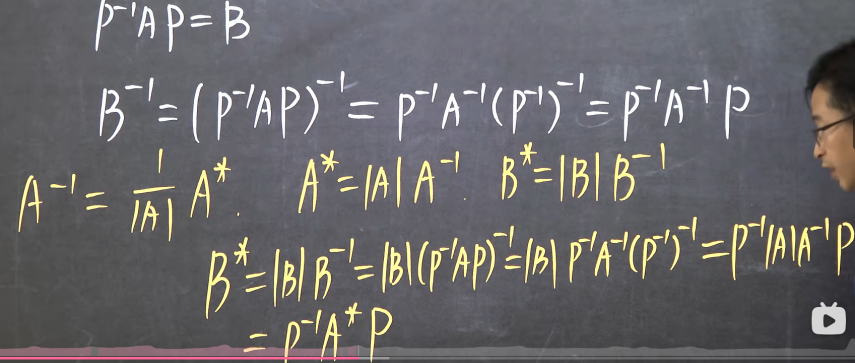 P⁻¹AP=B
B⁻¹=(P⁻¹AP)⁻¹=P⁻¹A⁻¹(P⁻¹)⁻¹=P⁻¹A⁻¹P
A⁻¹=1/|A| A*. A*=|A|A⁻¹. B*=|B|B⁻¹
B*=|B|B⁻¹=|B|(P⁻¹AP)⁻¹=|B|P⁻¹A⁻¹(P⁻¹)⁻¹=P⁻¹|A|A⁻¹P
=P⁻¹A*P